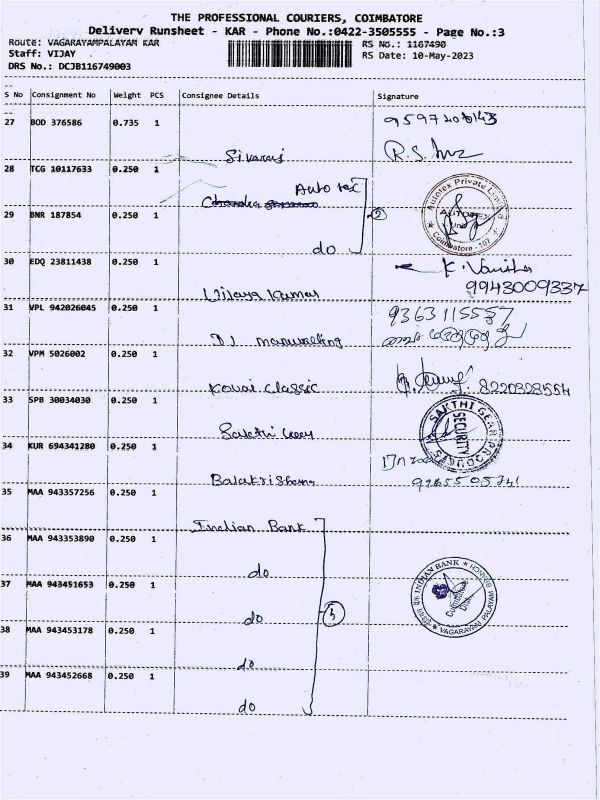 THE PROFESSIONAL COURIERS, COIMBATORE
Delivery Runsheet - KAR - Phone No.:0422-3505555 - Page No.:3
Route: VAGARAYAMPALAYAM KAR
RS No.: 1167490
Staff: VIJAY
RS Date: 10-May-2023
DRS No.: DCJB116749003
S No Consignment No Weight PCS Consignee Details Signature
27 BOD 376586 0.735 1 Sivaraj
R.S.
28 TCG 10117633 0.250 1 Auto tex
Autotex Private Limited
AUTOTEX
Unit
Coimbatore - 107
29 BNR 187854 0.250 1 do
2
30 EDQ 23811438 0.250 1 Vijaya Kumar
K. Vanitha
9943009337
31 VPL 942026045 0.250 1
9363115557
32 VPM 5026002 0.250 1 Kovai Classic
8220328554
33 SPB 30034030 0.250 1 Sakthi Gear
SAKTHI GEAR PRODUCTS
SECURITY
34 KUR 694341280 0.250 1
35 MAA 943357256 0.250 1 Indian Bank
36 MAA 943353890 0.250 1 do
INDIAN BANK
VAGARAYAM PALAYAM
37 MAA 943451653 0.250 1 do
5
38 MAA 943453178 0.250 1 do
39 MAA 943452668 0.250 1 do